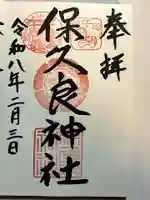 奉拝
保久良神社
令和八年二月三日